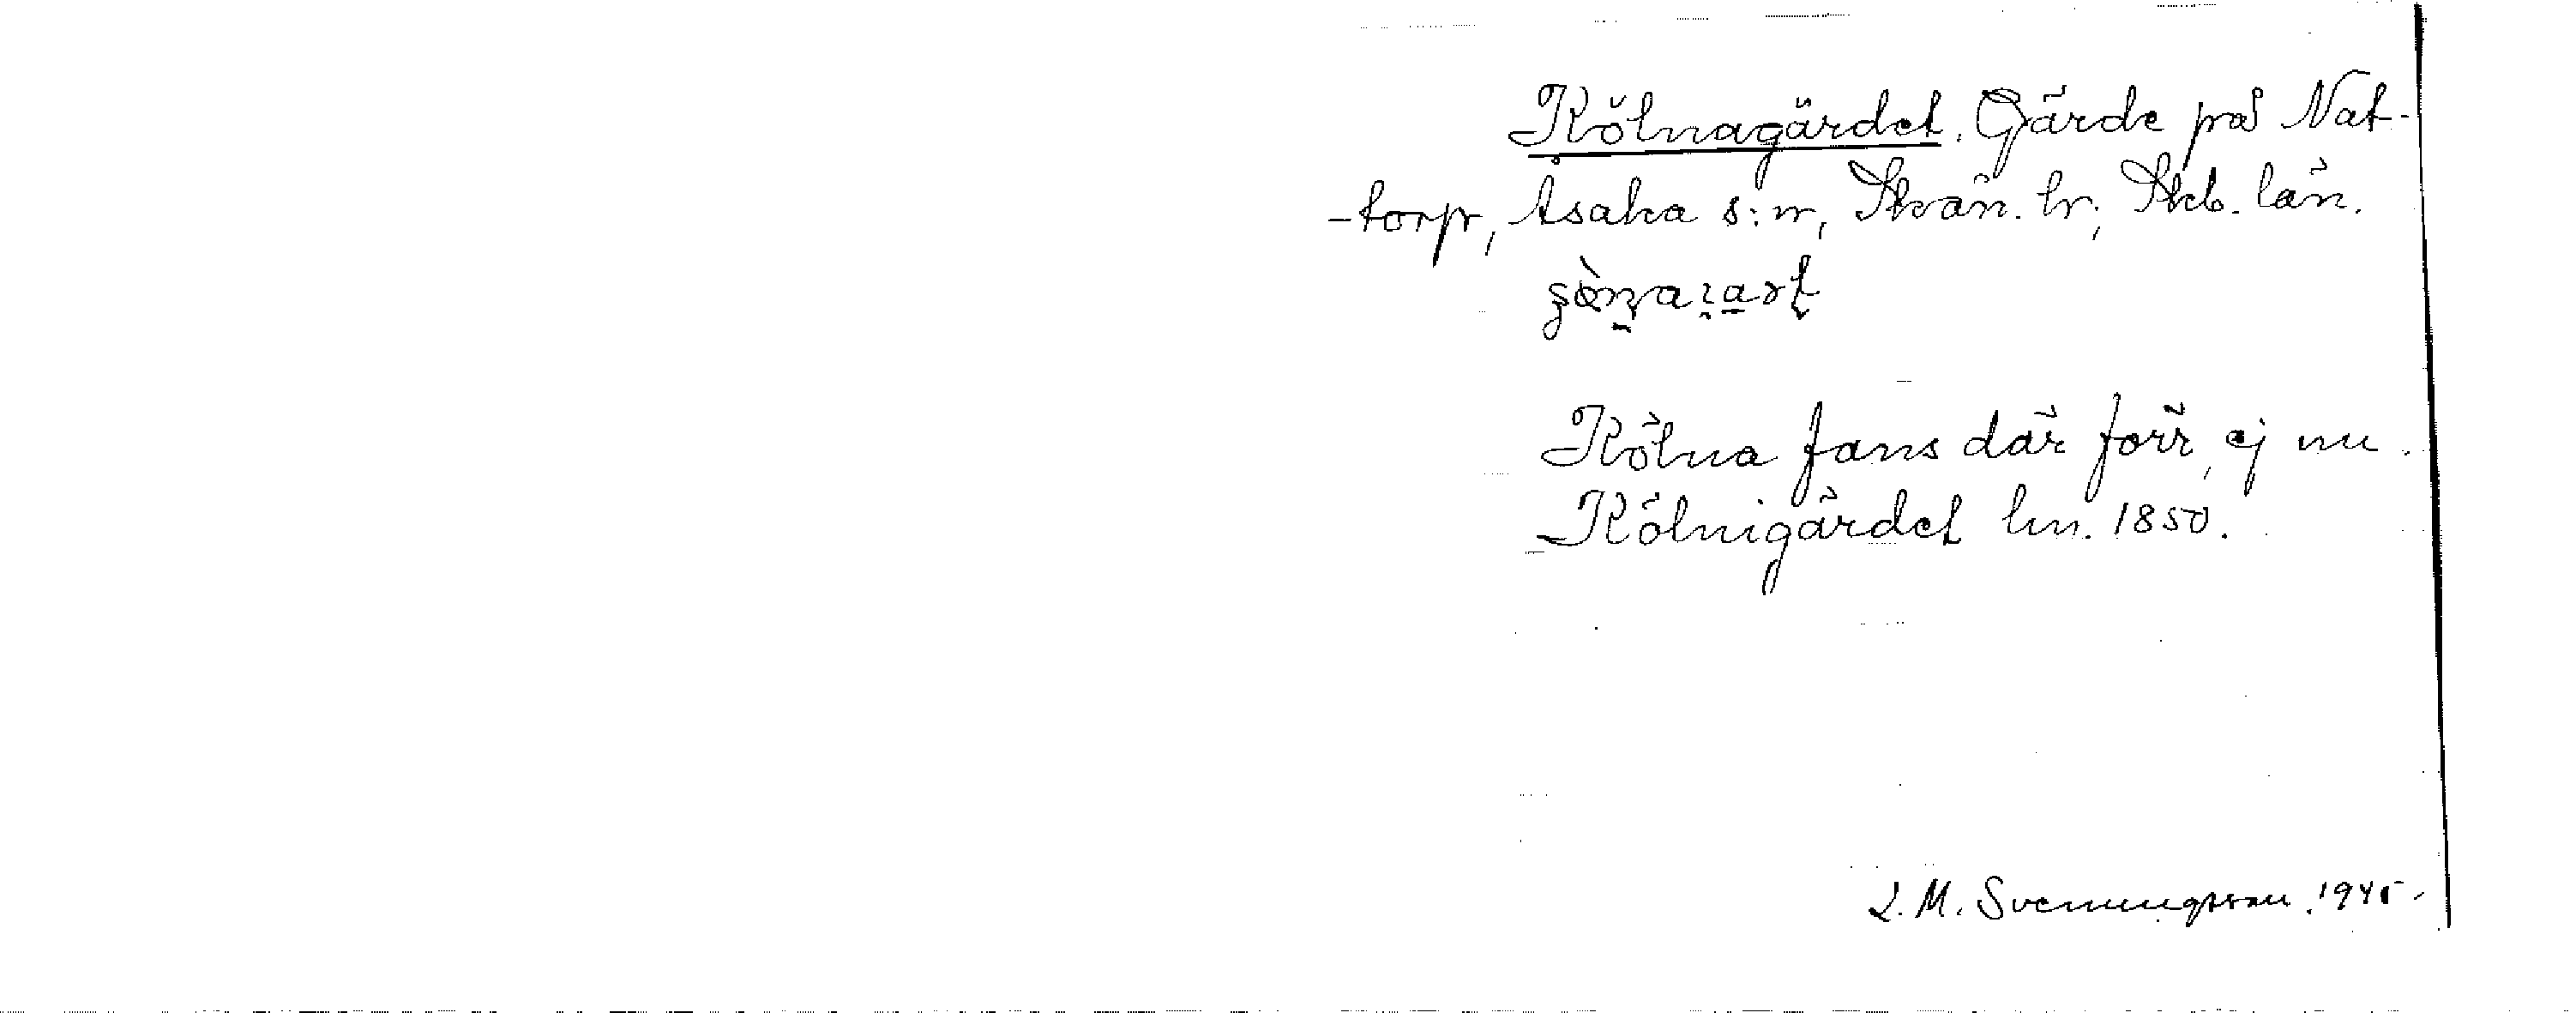 Kölnagärdet. Gärde på Nat-
-torp, Åsaka s:n, Skrän. hr, Skb. län.
Kölna fans där förr, ej nu.
Kölnigärdet hm. 1850.
L. M. Svenungsson 1945.